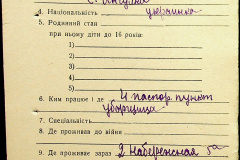 4. Національність українка
5. Родинний стан
при ньому діти до 16 років:
1)
2)
3)
4)
5)
6. Ким працює і де 4 паспор. пункт
уборщица
7. Спеціальність
8. Де проживав до війни
9. Де проживає зараз 2 Набережная 5а